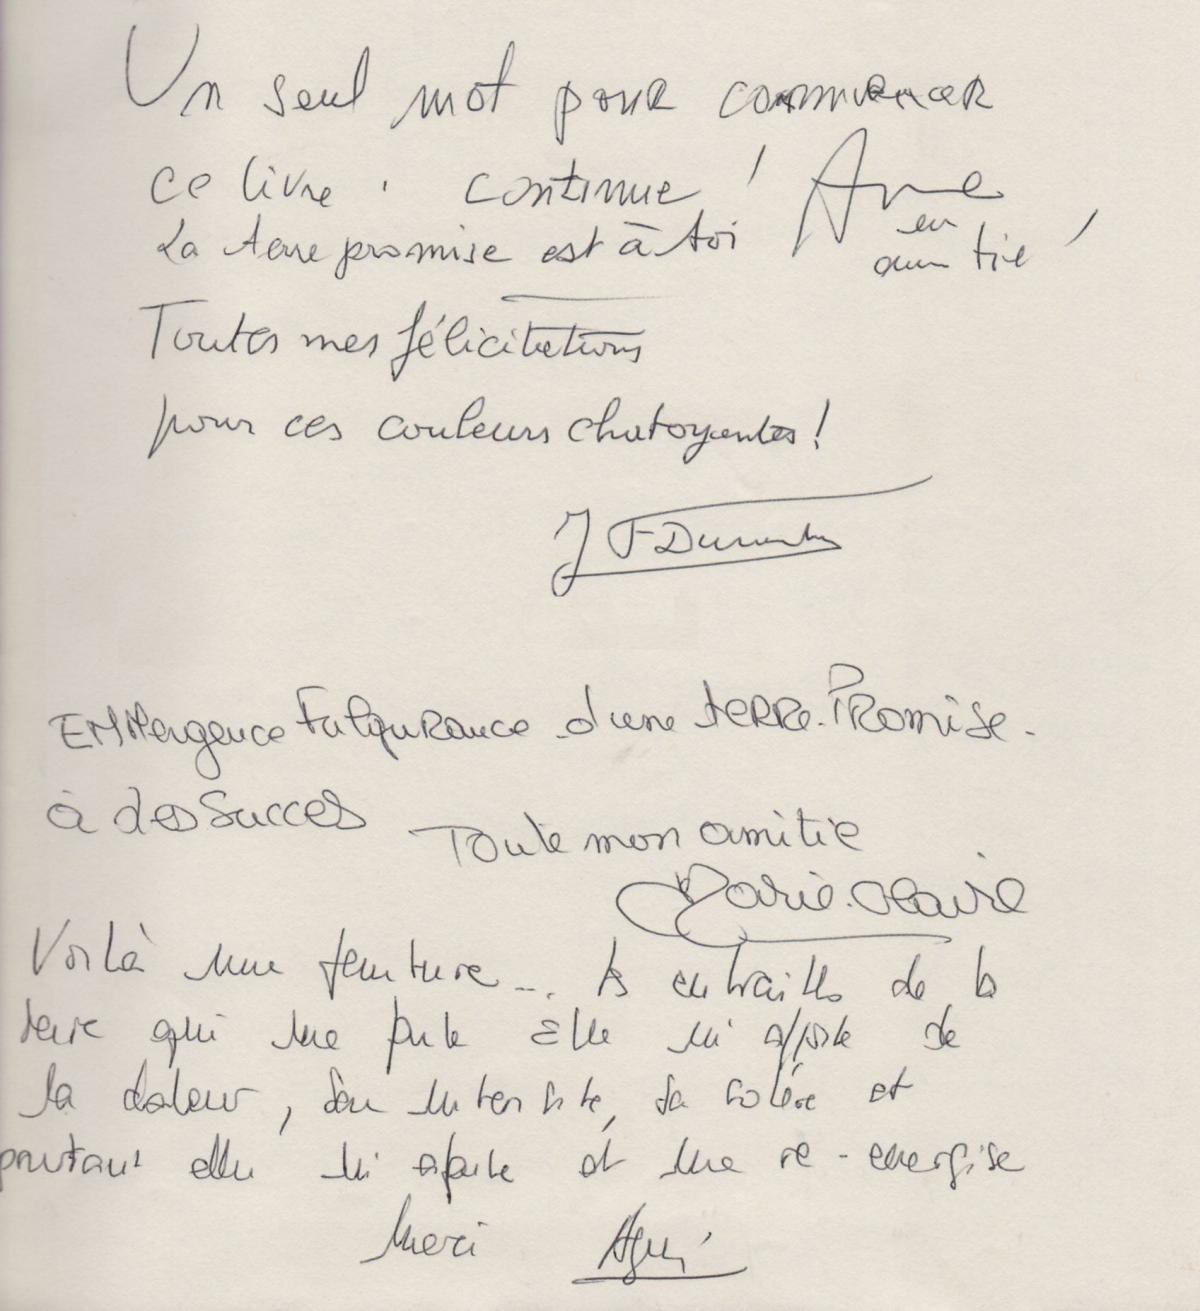 Un seul mot pour commencer
ce livre : continue ! Anne
La terre promise est à toi en
amitié !
Toutes mes félicitations
pour ces couleurs chatoyantes !
J F
EMMergence FulguRance d'une teRRe. PRomise.
à des Succes
Toute mon amitie
Marie.Claire
Voilà une peinture... les entrailles de la
terre qui me parle Elle m'apporte de
sa douleur, son intensité, sa colère et
pourtant elle m'apporte et me re-energise
Merci Agnès